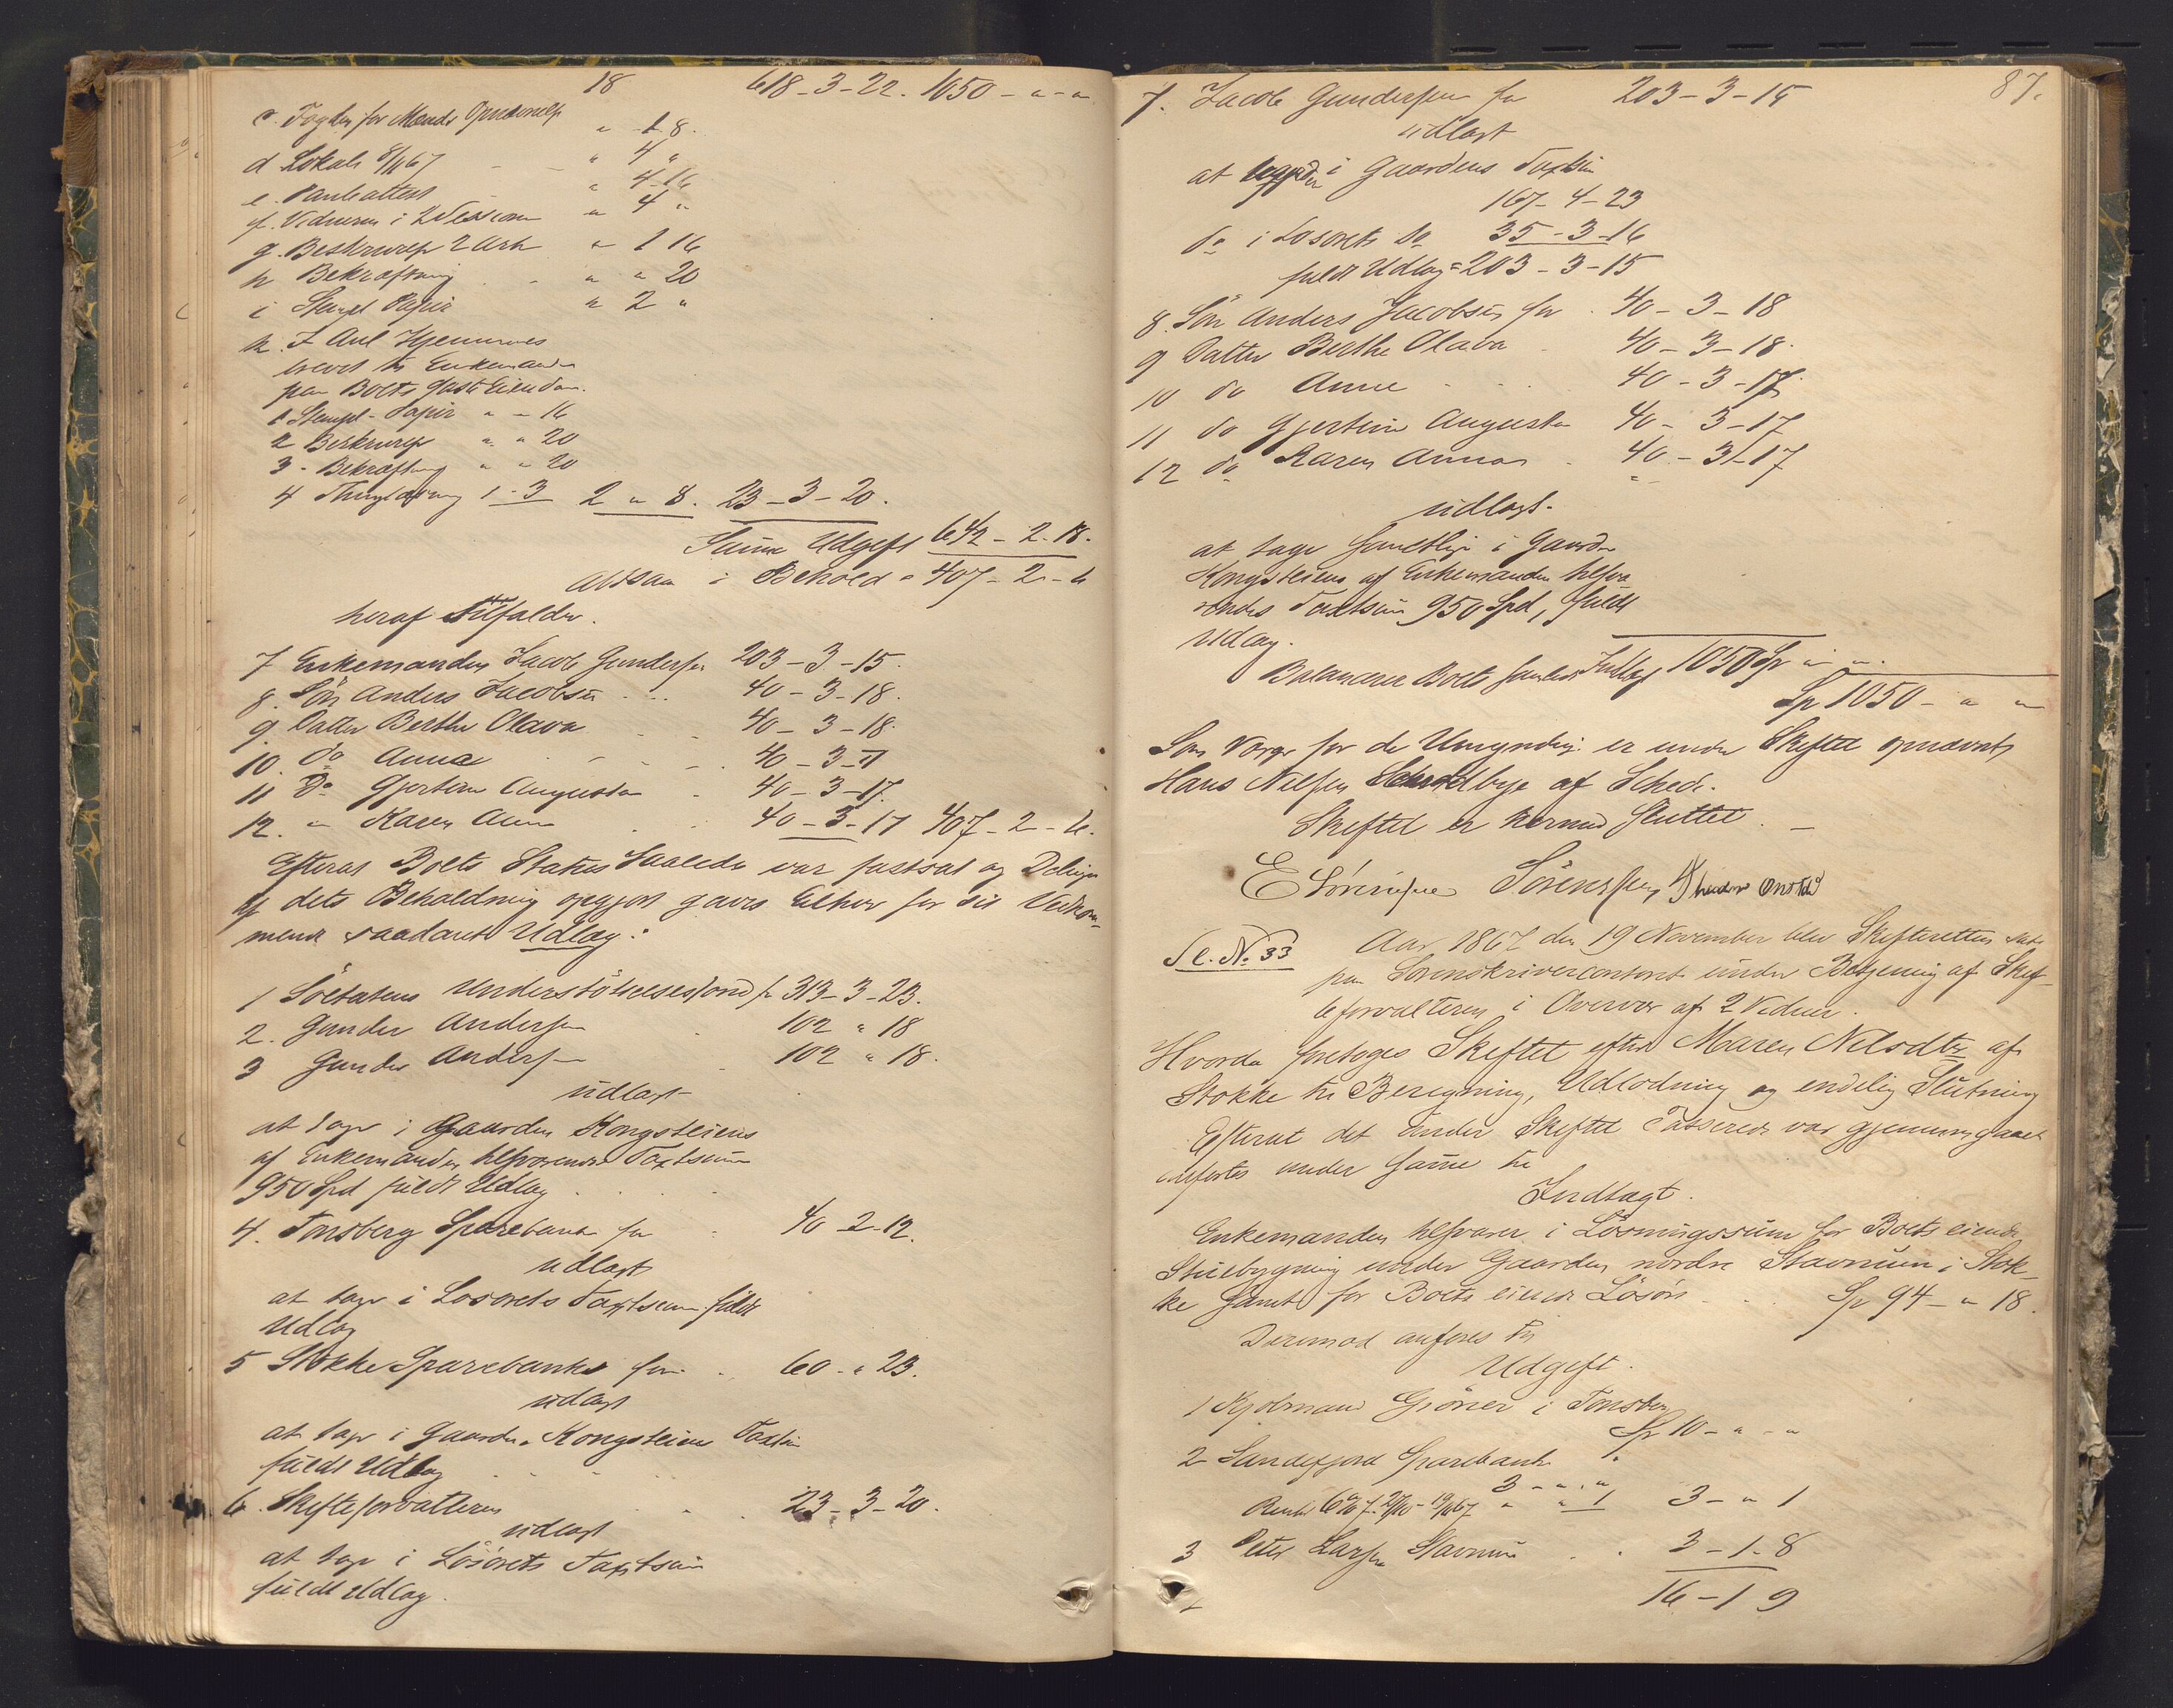 18 618-3-22. 1050 - " - "
c. Fogden for Mænds Opnævnelse " 1 8.
d Lokale 8/11 67 " 4 "
e. Panteattest " 4-16
f. Vidnerne i 2 Sessioner " 4 "
g. Beskrivelse 2 Ark " 1 16
h Bekræftning " " 20
i Stempl. Papir " 2 "
k. I Anl Hjemmels
brevet til Enkemanden
paa Boets faste Eiendom.
1 Stempl. Papir " - 16
2 Beskrivelse " " 20
3 - Bekræftning " " 20
4 Thinglæsning 1-3 2 " 8. 23-3-20.
Suma Udgift 642-2-18.
Altsaa i Behold = 407-2-6
heraf tilfalder.
7 Enkemanden Jacob Gundersen 203-3-15.
8. Sön Anders Jacobsen 40-3-18.
9. Datter Berthe Olava 40-3-18.
10. do Anna 40-3-17
11 do Gjertine Augusta 40-3-17.
12. " Karen Anna 40-3-17 407-2-6.
Efterat Boets Status saaledes var fastsat og Delingen
af dets Beholdning opgjort gaves Enhver for sit Vedkom-
mende saadant Udlæg:
1 Söetatens Understöttelsesfond for 313-3-23.
2. Gunder Andersen 102 " 18
3 Gunder Andersen 102 " 18.
udlagt
at tage i Gaarden Kongsteiens
af Enkemanden tilsvarende Taxtsum
950 Spd fuldt Udlæg
4. Tonsberg Sparebank for 40-2-12.
udlagt
at tage i Losorets Taxtsum fuldt
Udlæg
5 Stokke Sparebank for 60-"23.
udlagt
at tage i Gaarden Kongsteiens Taxtsum
fuldt Udlæg
6. Skifteforvalteren 23-3-20.
udlagt
at tage i Lösörets Taxtsum
fuldt Udlæg.
87.
7. Jacob Gundersen for 203-3-15
udlagt
at tage i Gaardens Taxtsum
167-4-23
do i Losorets do 35-3-16
fuldt Udlæg = 203-3-15
8. Sön Anders Jacobsen for 40-3-18
9 Datter Berthe Olava 40-3-18.
10 do Anne 40-3-17.
11 do Gjertine Augusta 40-3-17
12 do Karen Anna 40-3-17
udlagt.
at tage samtlige i Gaarden
Kongsteiens af Enkemanden tilsva-
rende Taxtsum 950 Spd, fuldt
Udlæg.
Balancerer Boets samlede Indtægt 1050 Sp " "
Sp 1050 - " "
Som Værge for de Umyndige er under Skiftet opnævnt
Hans Nilsen af Schede.
Skiftet er hermed sluttet. _
E Sörensen
Sl. No 33 Aar 1867 den 19 November blev Skifteretten sat
paa Sorenskrivercontoret under Betjening af Skif-
teforvalteren i Overvær af 2 Vidner.
Hvorda foretoges Skiftet efter Maren Nilsdtr af
Stokke til Beregning, Udlodning og endelig Slutning
Efterat det under Skiftet Passerede var gjennemgaaet
anfortes under samme til
Indtægt.
Enkemanden tilsvarer i Lösningssum for Boets eiende
Stuebygning under Gaarden nordre Stavnum i Stok-
ke samt for Boets eiende Lösöre Sp 94-" 18.
Derimod anfores til
Udgift.
1 Kjobmand Gröner i Tonsberg
Sp 10 - " - "
2 Sandefjord Sparebank
3 - " - "
Renter 6% " " 1 3 - " 1
3 Peter Larsen Stavnum 3-1-8
16-1 9